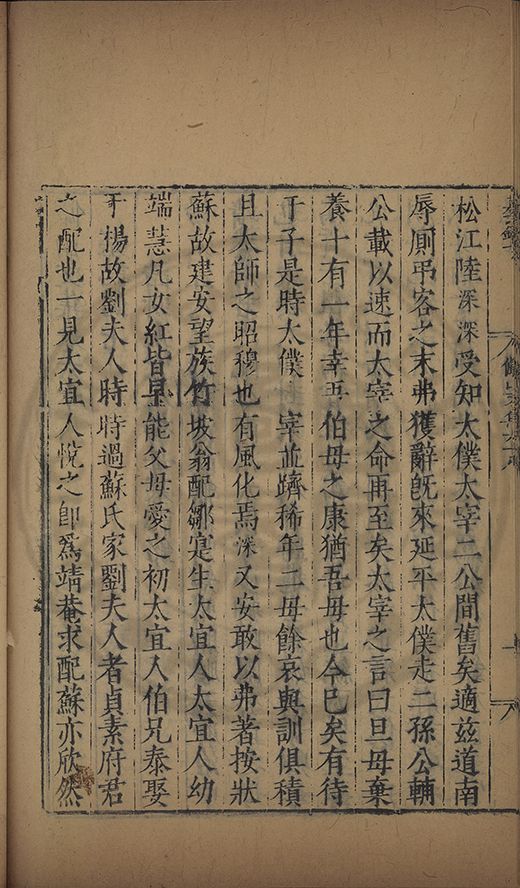 松江陸深深受知太僕太宰二公間舊矣適兹道南
辱厠弔客之末弗獲辭旣來延平太僕走二孫公輔
公載以速而太宰之命再至矣太宰之言曰旦毋棄
養十有一年幸吾伯母之康猶吾母也今已矣有待
于子是時太僕 宰並躋稀年二母餘哀與訓俱積
且太師之昭穆也有風化焉深又安敢以弗著按狀
蘇故建安望族竹坡翁配鄒寔生太宜人太宜人幼
端慧凡女紅皆早能父母愛之初太宜人伯兄泰娶
于楊故劉夫人時時過蘇氏家劉夫人者貞素府君
之配也一見太宜人悅之卽爲靖菴求配蘇亦欣然